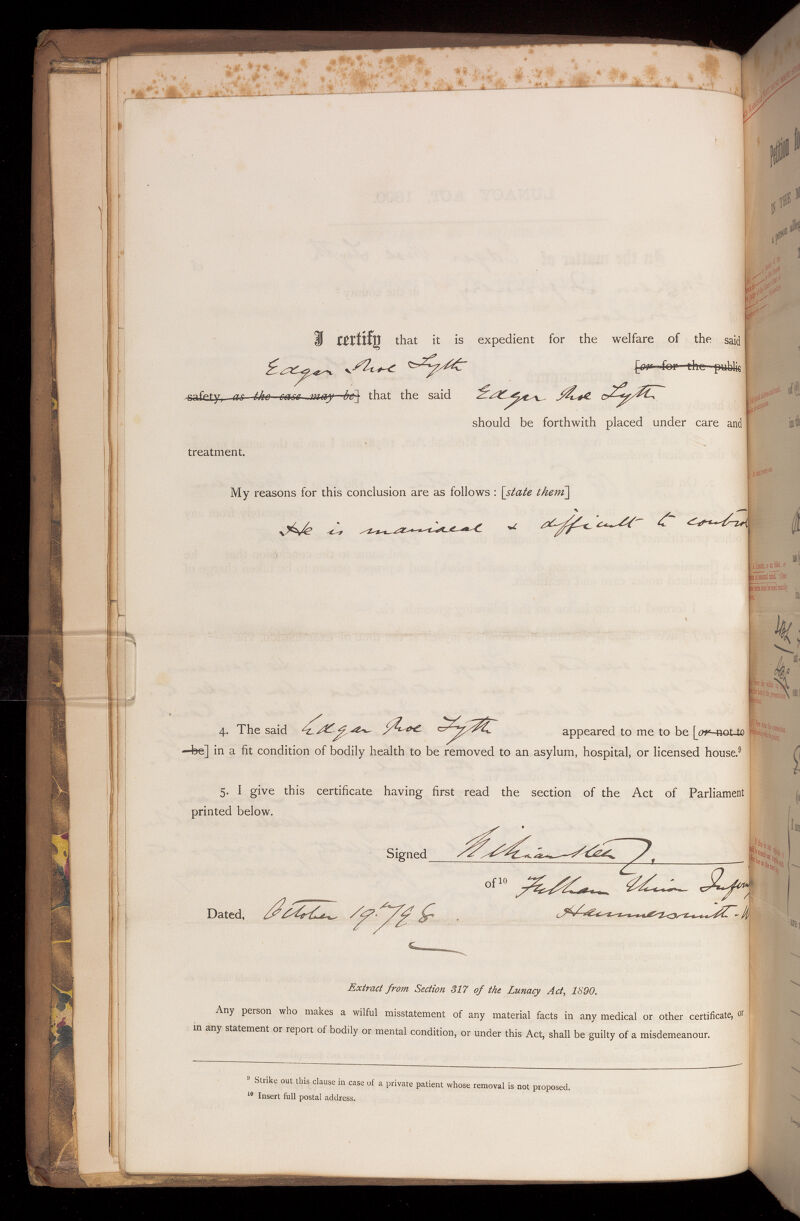 I certify that it is expedient for the welfare of the said
Edgar Roe Lyth [or for the public
safety, as the case may be] that the said Edgar Roe Lyth
should be forthwith placed under care and
treatment.
My reasons for this conclusion are as follows : [state them]
He is maniacal & difficult to control
4. The said Edgar Roe Lyth appeared to me to be [or not to
be] in a fit condition of bodily health to be removed to an asylum, hospital, or licensed house.⁹
5. I give this certificate having first read the section of the Act of Parliament
printed below.
Signed
of¹⁰ Fulham Union
Dated, October 19th/98. Hammersmith - W
Extract from Section 317 of the Lunacy Act, 1890.
Any person who makes a wilful misstatement of any material facts in any medical or other certificate, or
in any statement or report of bodily or mental condition, or under this Act, shall be guilty of a misdemeanour.
⁹ Strike out this clause in case of a private patient whose removal is not proposed.
¹⁰ Insert full postal address.
Petition fo
IN THE M